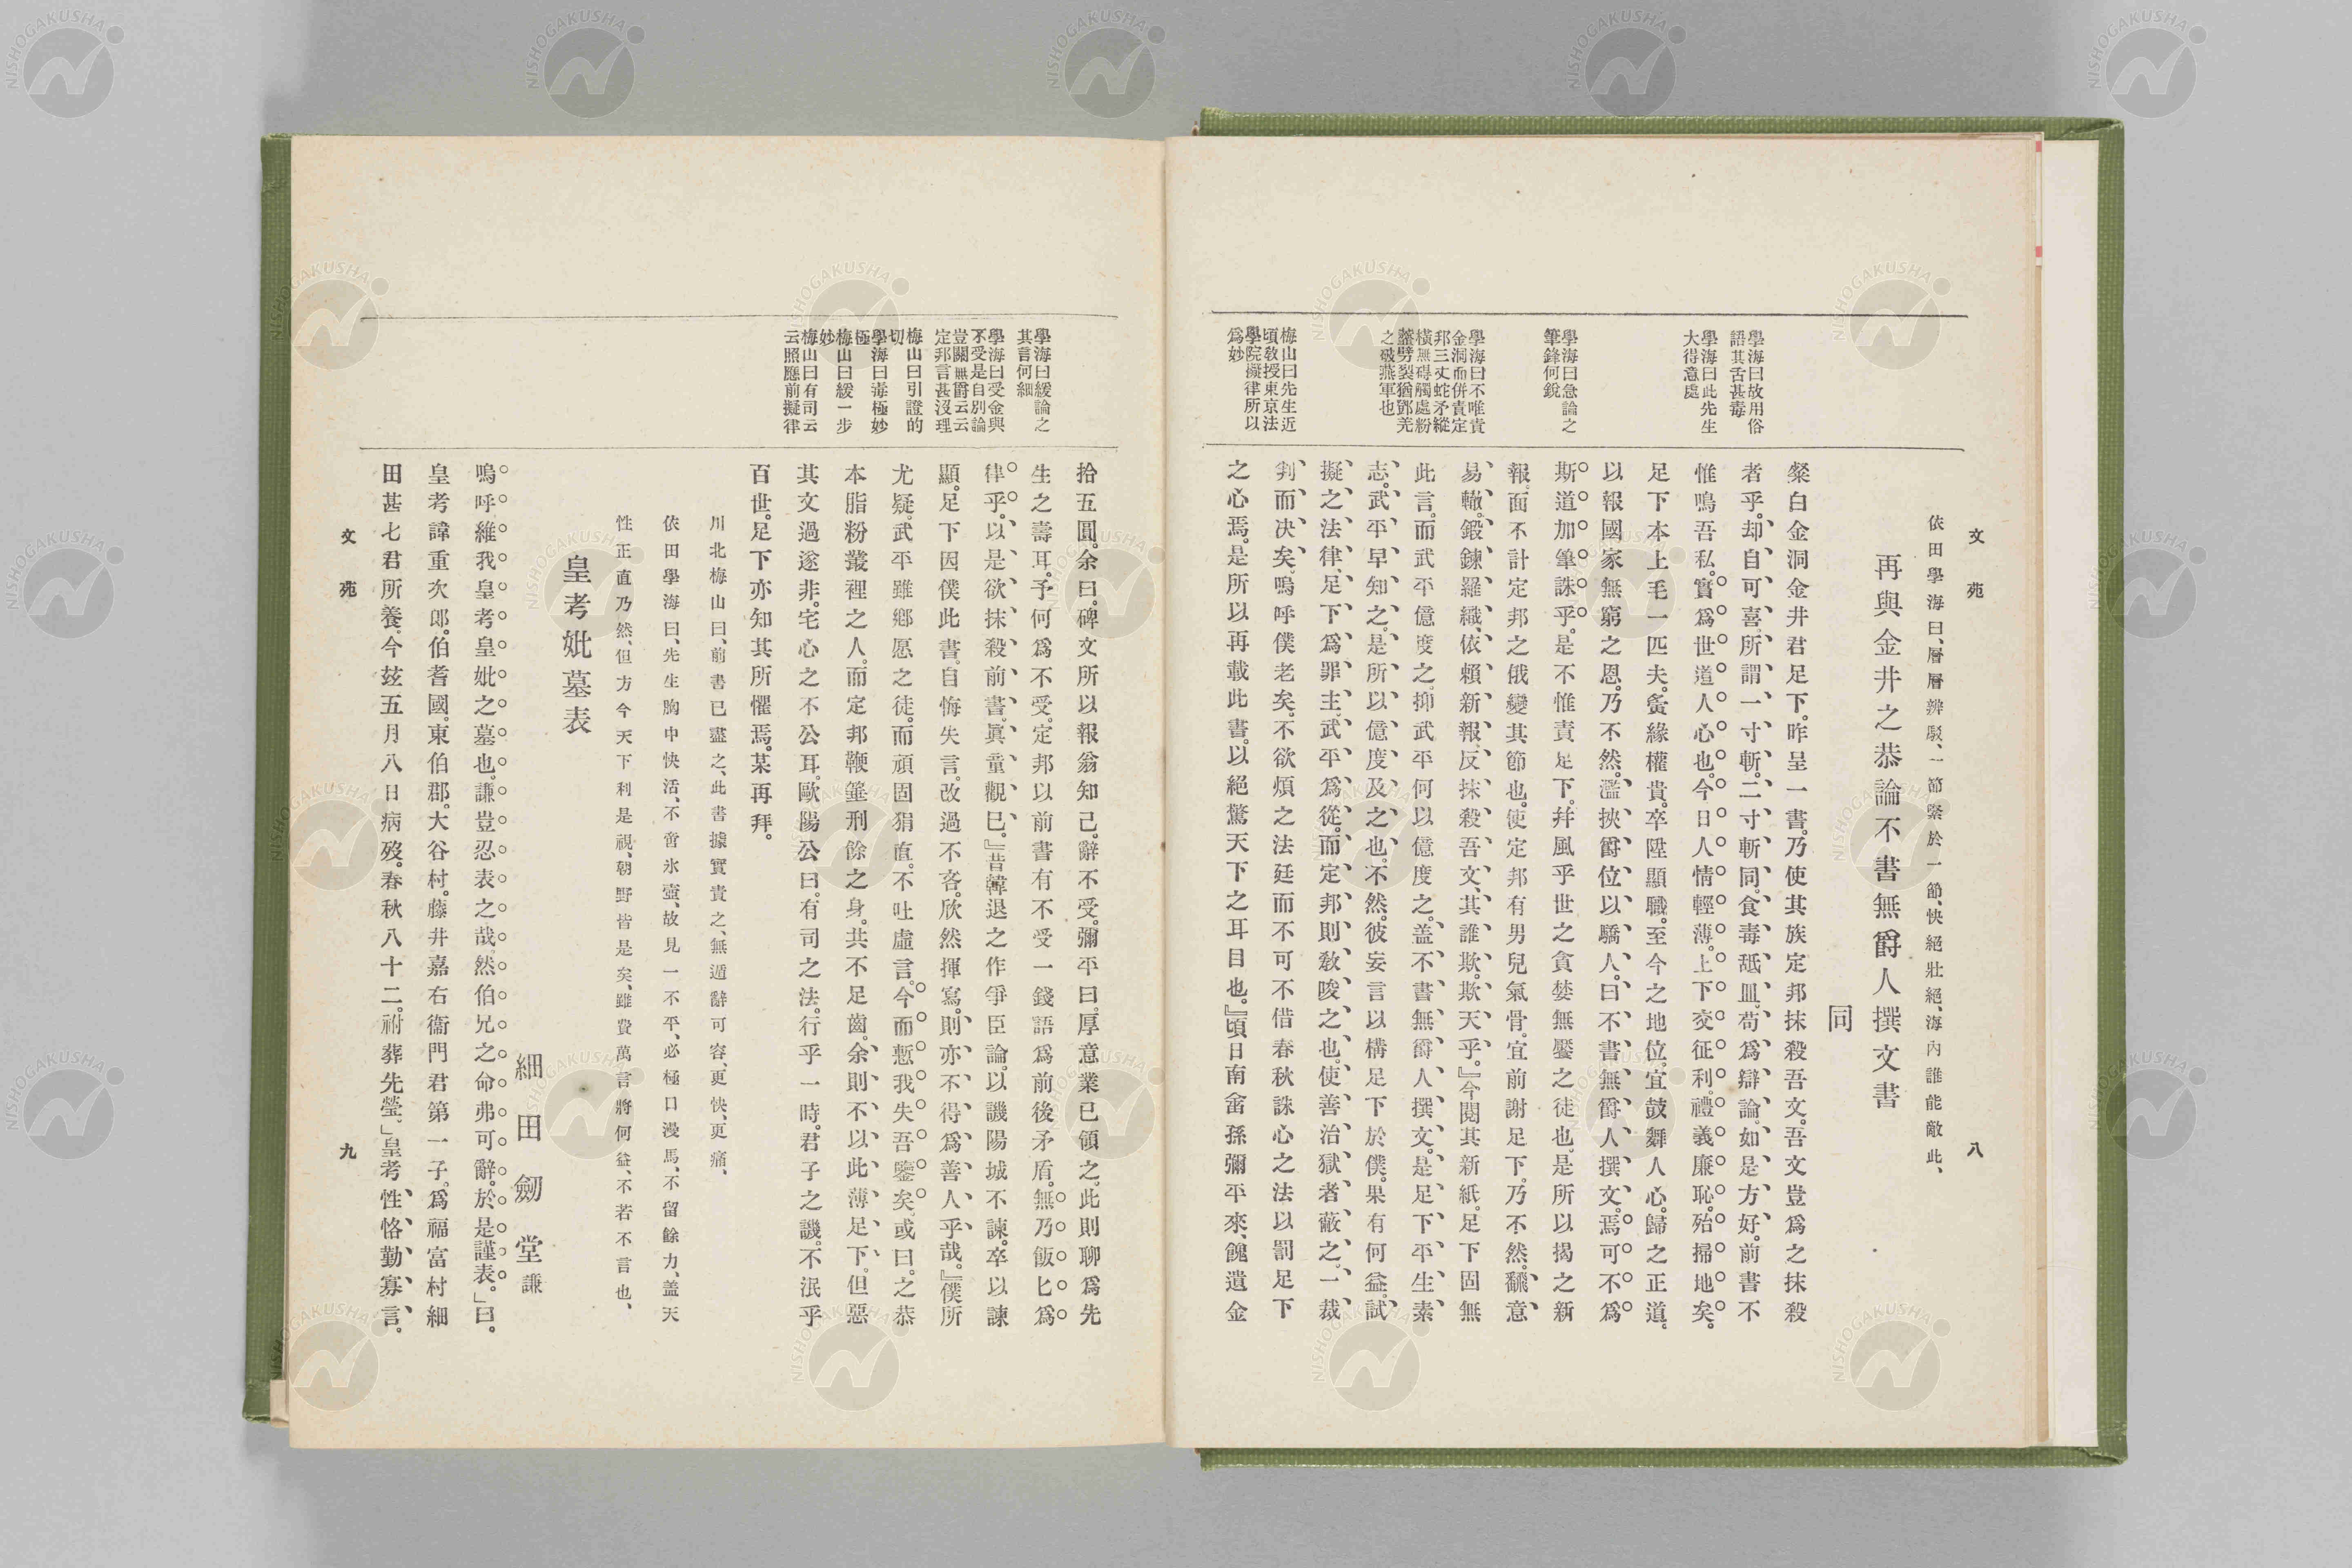 文苑
八
依田學海曰、層層辨駁、一節緊於一節、快絕壯絕、海內誰能敵此、
再與金井之恭論不書無爵人撰文書
同
粲白金洞金井君足下。昨呈一書。乃使其族定邦抹殺吾文。吾文豈爲之抹殺
者乎。却自可喜。所謂一寸斬。二寸斬同。食毒舐皿。苟爲辯論。如是方好。前書不
惟鳴吾私。實爲世道人心也。今日人情輕薄。上下交征利。禮義廉恥。殆掃地矣。
足下本上毛一匹夫。夤緣權貴。卒陞顯職。至今之地位。宜鼓舞人心。歸之正道。
以報國家無窮之恩。乃不然。濫挾爵位以驕人。曰不書無爵人撰文。焉可不爲
斯道加筆誅乎。是不惟責足下。幷風乎世之貪婪無饜之徒也。是所以揭之新
報。面不計定邦之俄變其節也。使定邦有男兒氣骨。宜前謝足下。乃不然。飜意
易轍。鍛鍊羅織。依賴新報。反抹殺吾文。其誰欺。欺天乎。』今閱其新紙。足下固無
此言。而武平億度之。抑武平何以億度之。盖不書無爵人撰文。是足下平生素
志。武平早知之。是所以億度及之也。不然。彼妄言以構足下於僕。果有何益。試
擬之法律。足下爲罪主。武平爲從。而定邦則敎唆之也。使善治獄者蔽之。一裁
判而决矣。嗚呼僕老矣。不欲煩之法廷而不可不借春秋誅心之法以罰足下
之心焉。是所以再載此書。以絕驚天下之耳目也。』頃日南畬孫彌平來、餽遺金
學海曰故用俗
語其舌甚毒
學海曰此先生
大得意處
學海曰急論之
筆鋒何銳
學海曰不唯責
金洞而併責定
邦三丈蛇矛縱
橫無碍觸處粉
虀劈裂猶鄧羌
之破燕軍也
梅山曰先生近
頃敎授東京法
學院擬律所以
爲妙
拾五圓。余曰。碑文所以報翁知己。辭不受。彌平曰。厚意業已領之。此則聊爲先
生之壽耳。予何爲不受。定邦以前書有不受一錢語爲前後矛盾。無乃飯匕爲
律乎。以是欲抹殺前書。眞童觀已。』昔韓退之作爭臣論。以譏陽城不諫。卒以諫
顯。足下因僕此書。自悔失言。改過不吝。欣然揮寫。則亦不得爲善人乎哉。』僕所
尤疑。武平雖鄉愿之徒。而頑固狷直。不吐虛言。今而慙我失吾鑒矣。或曰。之恭
本脂粉叢裡之人。而定邦鞭箠刑餘之身。共不足齒。余則不以此薄足下。但惡
其文過遂非。宅心之不公耳。歐陽公曰。有司之法。行乎一時。君子之譏。不泯乎
百世。足下亦知其所懼焉。某再拜。
川北梅山曰、前書已盡之、此書據實責之、無遁辭可容、更快、更痛、
依田學海曰、先生胸中快活、不啻氷壺、故見一不平、必極口漫馬、不留餘力、盖天
性正直乃然、但方今天下利是視、朝野皆是矣、雖費萬言將何益、不若不言也、
皇考妣墓表
細田劒堂謙
嗚呼維我皇考皇妣之墓也。謙豈忍表之哉。然伯兄之命弗可辭。於是謹表。」曰。
皇考諱重次郎。伯耆國。東伯郡。大谷村。藤井嘉右衞門君第一子。爲福富村細
田甚七君所養。今玆五月八日病歿。春秋八十二。祔葬先塋。」皇考性恪勤寡言。
學海曰緩論之
其言何細
學海曰受金與
不受是自別論
豈關無爵云云
定邦言甚沒理
梅山曰引證的
切
學海曰毒極妙
極
梅山曰緩一步
妙
梅山曰有司云
云照應前擬律
文苑
九